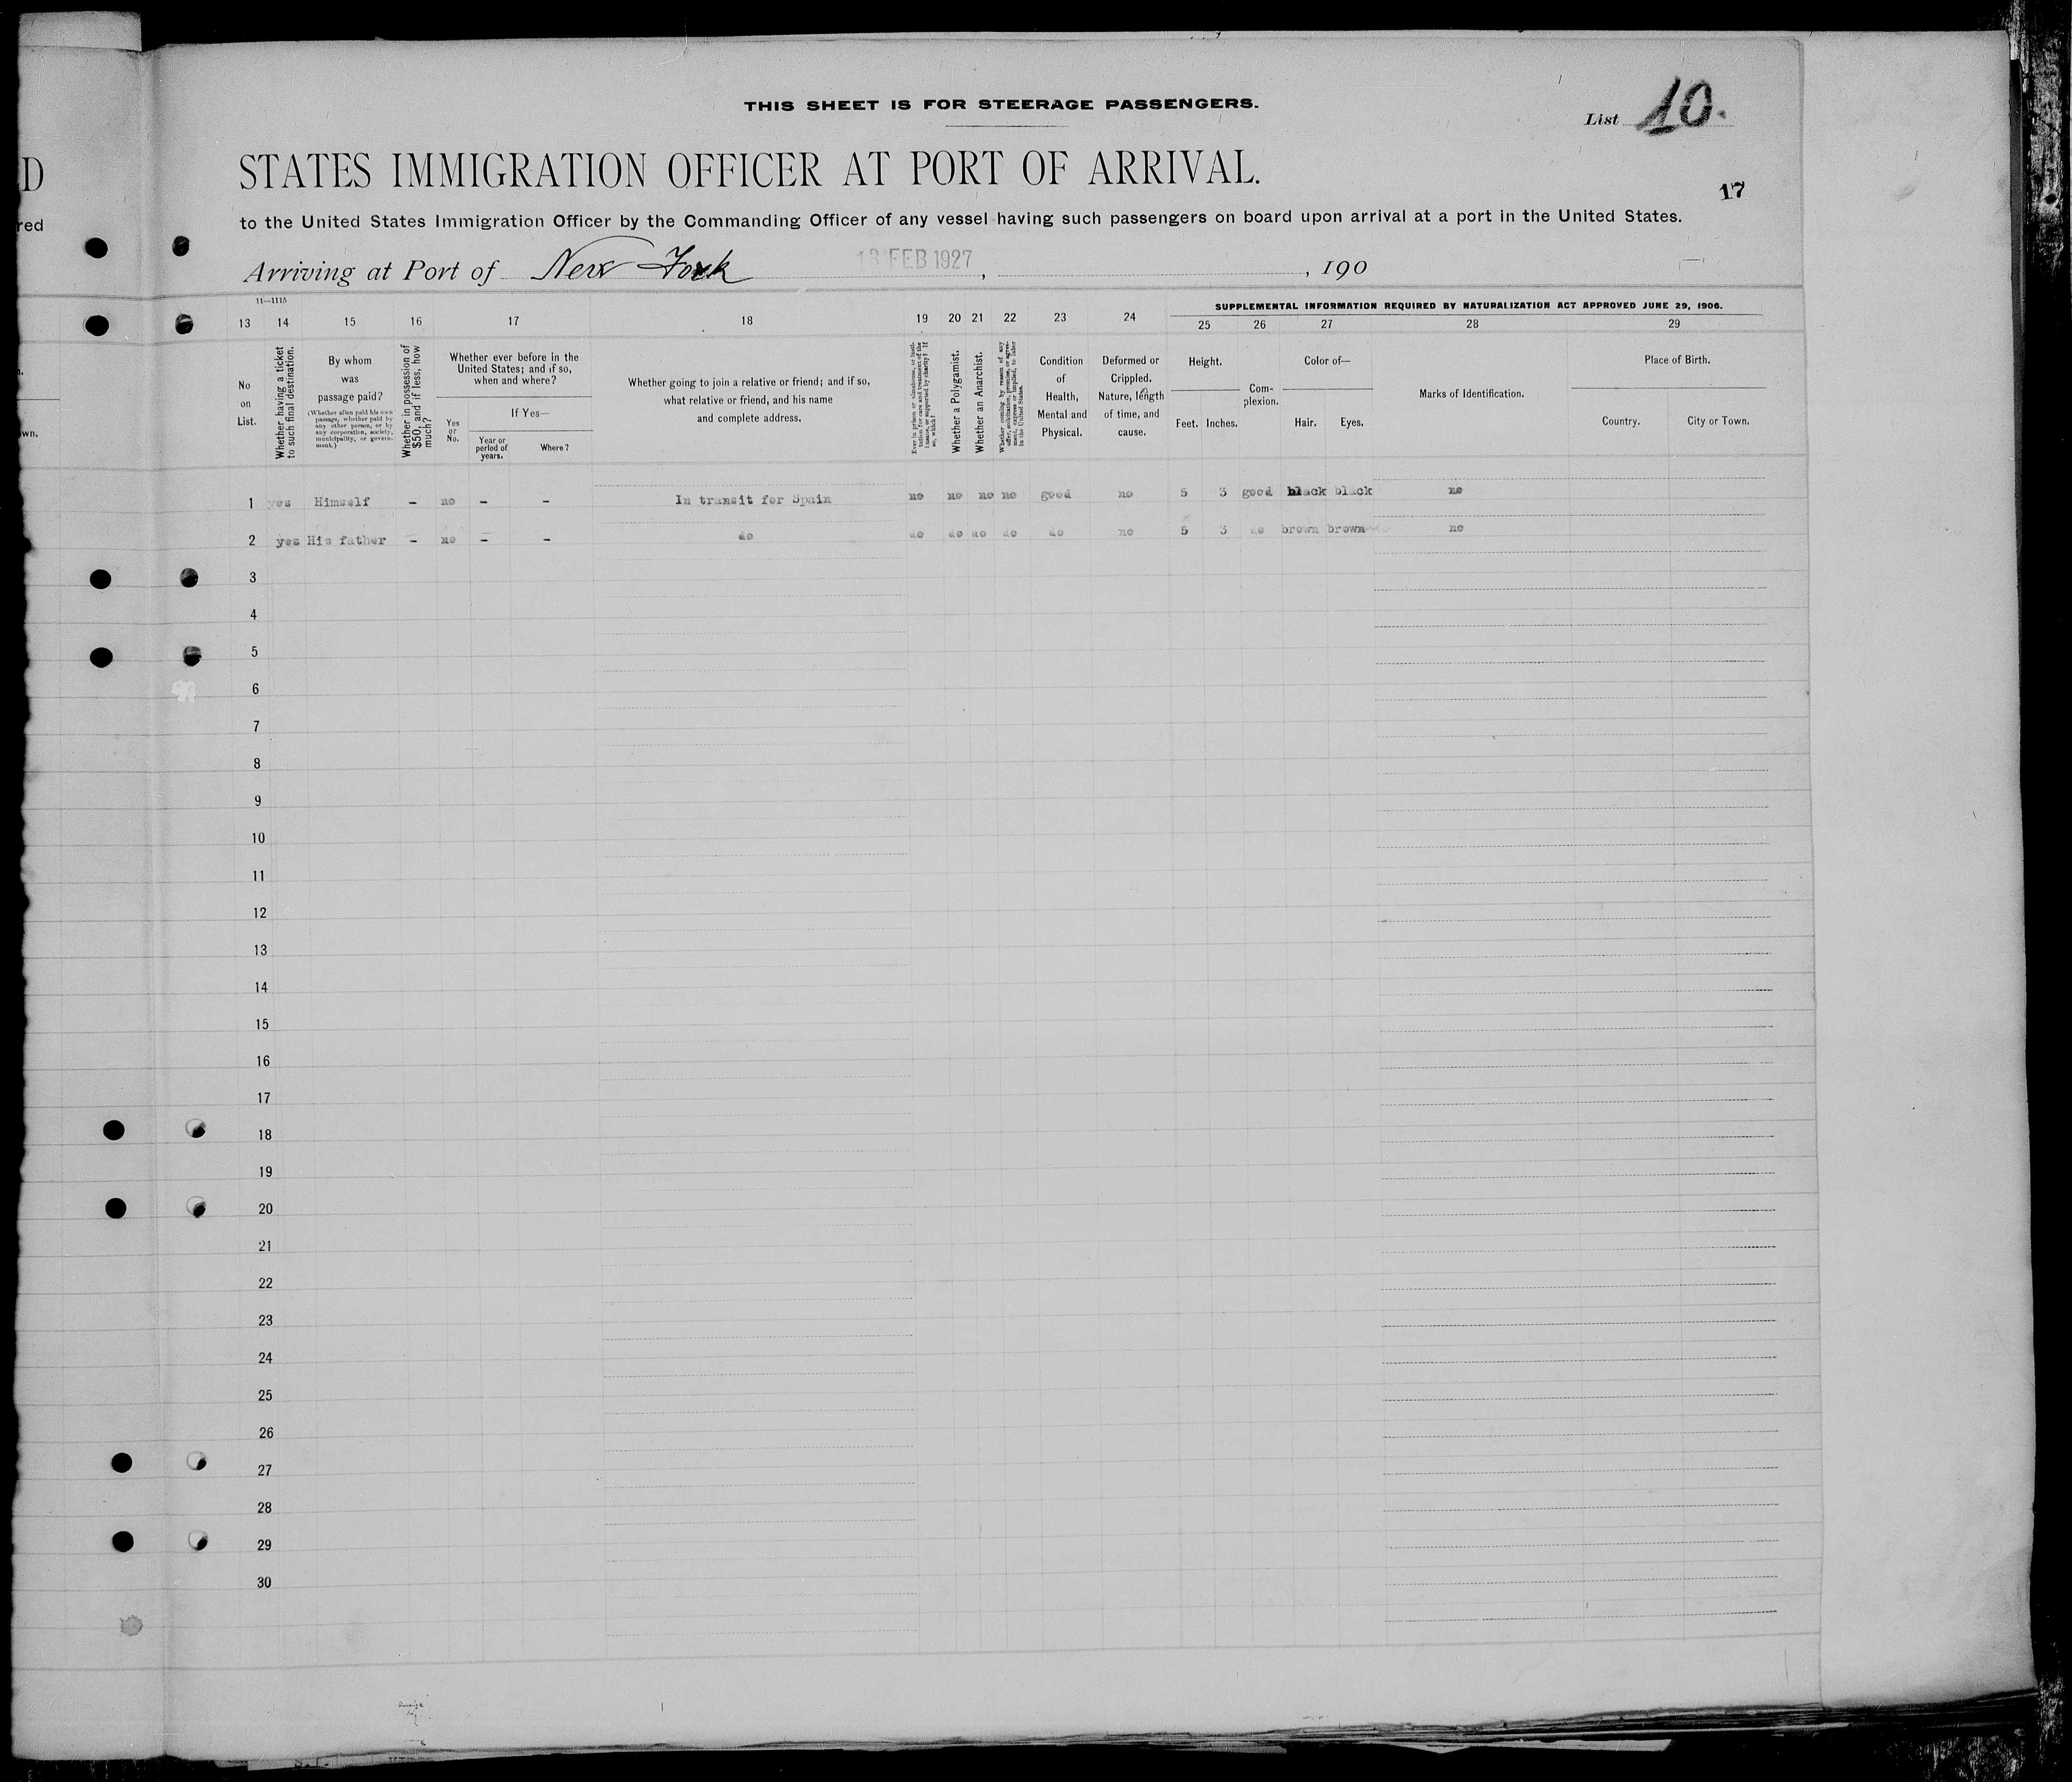 D
red
wn.
THIS SHEET IS FOR STEERAGE PASSENGERS.
List 10.
STATES IMMIGRATION OFFICER AT PORT OF ARRIVAL.
17
to the United States Immigration Officer by the Commanding Officer of any vessel having such passengers on board upon arrival at a port in the United States.
Arriving at Port of New York 13 FEB 1927, , 190
11—1115
SUPPLEMENTAL INFORMATION REQUIRED BY NATURALIZATION ACT APPROVED JUNE 29, 1906.
13 14 15 16 17 18 19 20 21 22 23 24 25 26 27 28 29
No on List.
Whether having a ticket to such final destination.
By whom was passage paid?
(Whether alien paid his own passage, whether paid by any other person, or by any corporation, society, municipality, or government.)
Whether in possession of $50, and if less, how much?
Whether ever before in the United States; and if so, when and where?
Yes or No.
If Yes—
Year or period of years.
Where?
Whether going to join a relative or friend; and if so, what relative or friend, and his name and complete address.
Ever in prison or almshouse, or institution for care and treatment of the insane, or supported by charity? If so, which?
Whether a Polygamist.
Whether an Anarchist.
Whether coming by reason of any offer, solicitation, promise, or agreement, express or implied, to labor in the United States.
Condition of Health, Mental and Physical.
Deformed or Crippled. Nature, length of time, and cause.
Height.
Feet. Inches.
Complexion.
Color of—
Hair. Eyes.
Marks of Identification.
Place of Birth.
Country. City or Town.
1 yes Himself – no – – In transit for Spain no no no no good no 5 3 good black black no
2 yes His father – no – – do do do do do do no 5 3 do brown brown no
3
4
5
6
7
8
9
10
11
12
13
14
15
16
17
18
19
20
21
22
23
24
25
26
27
28
29
30